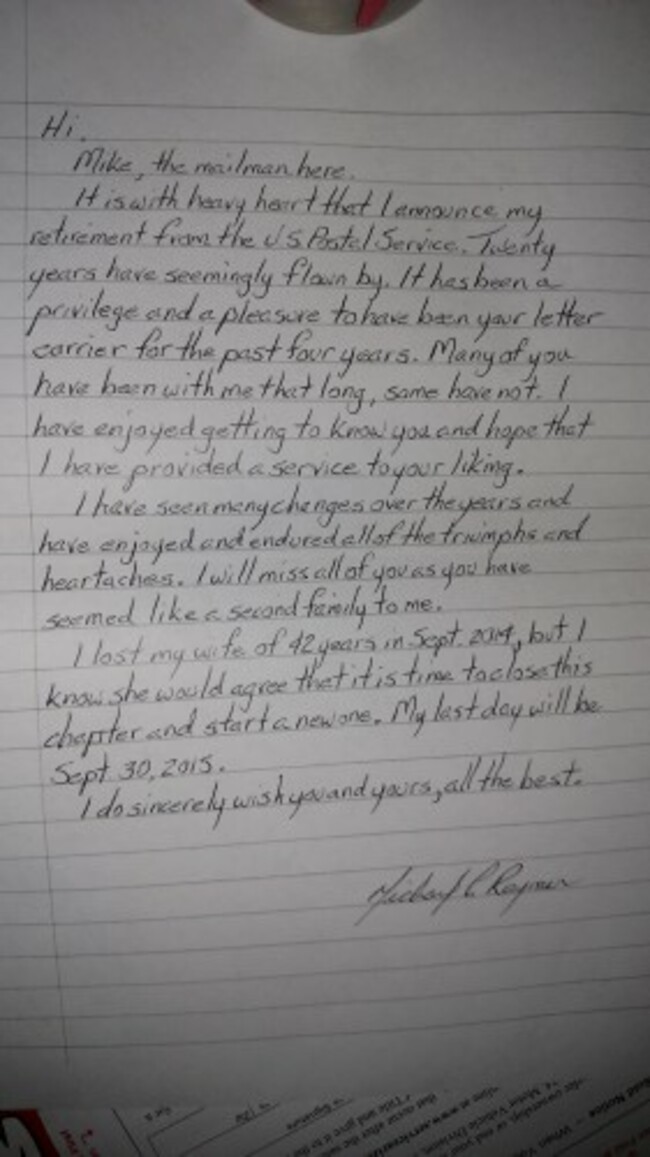 Hi.
Mike, the mailman here.
It is with heavy heart that I announce my
retirement from the US Postal Service. Twenty
years have seemingly flown by. It has been a
privilege and a pleasure to have been your letter
carrier for the past four years. Many of you
have been with me that long, some have not. I
have enjoyed getting to know you and hope that
I have provided a service to your liking.
I have seen many changes over the years and
have enjoyed and endured all of the triumphs and
heartaches. I will miss all of you as you have
seemed like a second family to me.
I lost my wife of 42 years in Sept. 2014, but I
know she would agree that it is time to close this
chapter and start a new one. My last day will be
Sept 30, 2015.
I do sincerely wish you and yours, all the best.